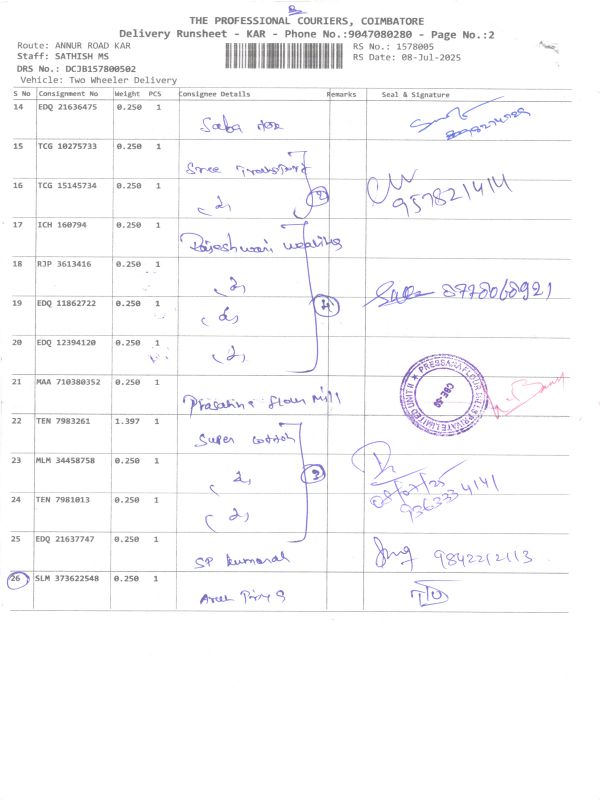 THE PROFESSIONAL COURIERS, COIMBATORE
Delivery Runsheet - KAR - Phone No.:9047080280 - Page No.:2
Route: ANNUR ROAD KAR RS No.: 1578005
Staff: SATHISH MS RS Date: 08-Jul-2025
DRS No.: DCJB157800502
Vehicle: Two Wheeler Delivery
S No Consignment No Weight PCS Consignee Details Remarks Seal & Signature
14 EDQ 21636475 0.250 1
15 TCG 10275733 0.250 1
Sree Transport
16 TCG 15145734 0.250 1
(2) 2 9578214114
17 ICH 160794 0.250 1
Rajeshwari weaving
18 RJP 3613416 0.250 1
(2) 8778068921
19 EDQ 11862722 0.250 1
(2) 4
20 EDQ 12394120 0.250 1
(2)
21 MAA 710380352 0.250 1
flour Mill
22 TEN 7983261 1.397 1
Super cotton
23 MLM 34458758 0.250 1
(2)
24 TEN 7981013 0.250 1
(2) 08/07/25
9363334141
25 EDQ 21637747 0.250 1
SP kumaran 9842212113
26 SLM 373622548 0.250 1